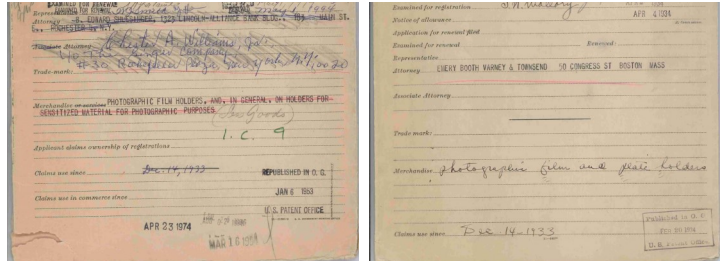 EXAMINED FOR RENEWAL
Attorney B. EDWARD SHLESINGER, 1325 LINCOLN-ALLIANCE BANK BLDG., 183 MAIN ST.
ROCHESTER, N.Y.
Associate Attorney Chester A. Williams, Jr.
c/o The Singer Company
#30 Rockefeller Plaza, New York, N.Y. 10020
Trade-mark:
Merchandise or services PHOTOGRAPHIC FILM HOLDERS, AND, IN GENERAL, ON HOLDERS FOR
SENSITIZED MATERIAL FOR PHOTOGRAPHIC PURPOSES
(See Goods)
I.C. 9
Applicant claims ownership of registrations
Claims use since Dec. 14, 1933
REPUBLISHED IN O. G.
JAN 6 1953
U.S. PATENT OFFICE
Claims use in commerce since
APR 23 1974
MAR 16 1954
Examined for registration
Notice of allowance APR 4 1934
Application for renewal filed
Examined for renewal Renewed:
Representative
Attorney EMERY BOOTH VARNEY & TOWNSEND 50 CONGRESS ST BOSTON MASS
Associate Attorney
Trade mark:
Merchandise photographic film and plate holders
Claims use since Dec 14-1933
Published in O. G.
FEB 20 1934
U. S. Patent Office